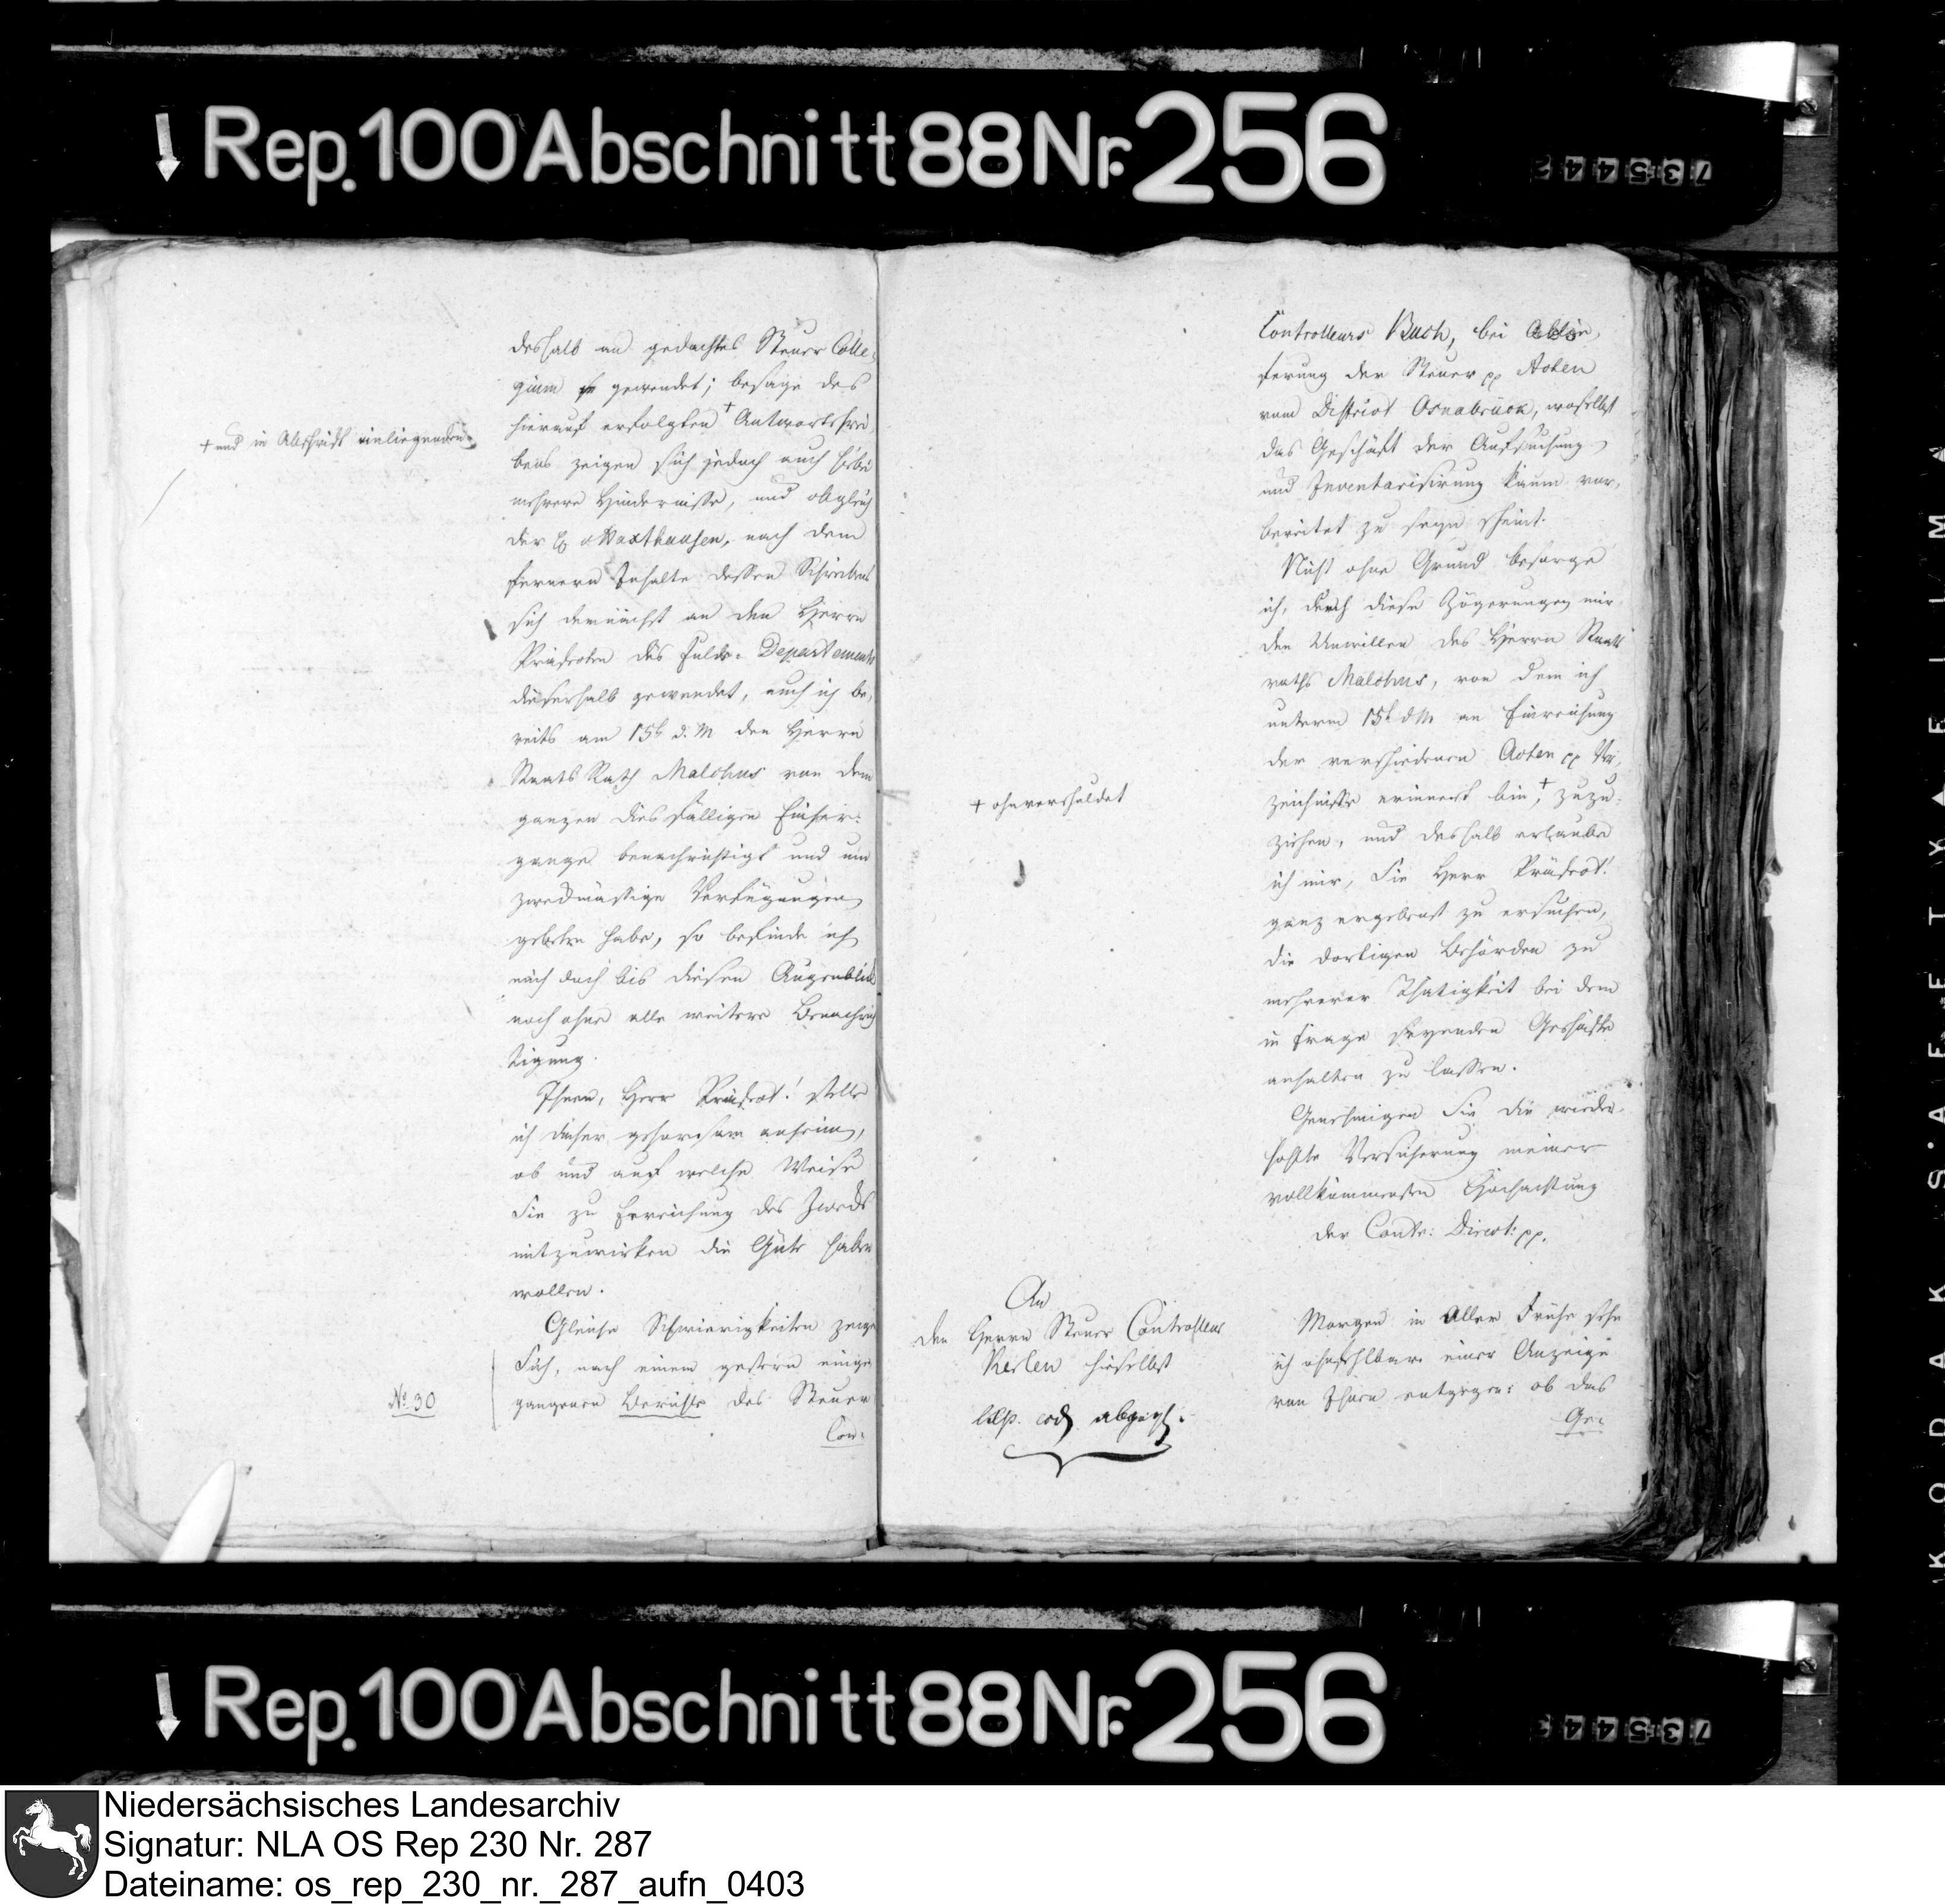 Rep. 100 Abschnitt 88 Nr. 256
deshalb an gedachtes Steuer Colle-
gium gewendet; besage des
hierauf erfolgten + Antwortschrei
bens zeigen sich jedoch auch hiebei
mehrere Hindernisse, und obgleich
der v Haxthausen, nach dem
fernern Inhalte dessen Schreibens
sich demnächst an den Herrn
Präfecten des Fulda-Departements
dieserhalb gewendet, auch ich be-
reits am 15t d. M den Herrn
Staats Rath Malchus von dem
ganzen diesfälligen Hinher-
gange benachrichtigt und um
zweckmäßige Verfügungen
gebeten habe, so befinde ich
mich doch bis diesen Augenblick
noch ohne alle weitere Benachrich
tigung.
Ihnen, Herr Präfect! stelle
ich daher gehorsam anheim,
ob und auf welche Weise
Sie zu Erreichung des Zwecks
mitzuwirken die Güte haben
wollen.
Gleiche Schwierigkeiten zeigen
Sich, nach einem gestern einge
gangenen Berichte des Steuer
Con-
+ und in Abschrift einliegenden
No 30
Controlleurs Buch, bei Ablie-
ferung der Steuer pp Acten
vom District Osnabrück, woselbst
das Geschäft der Aufsuchung
und Inventarisirung kaum vor-
bereitet zu seyn scheint.
Nicht ohne Grund besorge
ich, durch diese Zögerungen mir
den Unwillen des Herrn Staats
raths Malchus, von dem ich
unterm 15t d M an Einreichung
der verschiedenen Acten pp Ver-
zeichnisse erinnert bin, + zuzu-
ziehen, und deshalb erlaube
ich mir, Sie Herr Präfect!
ganz ergebenst zu ersuchen,
die dortigen Behörden zu
mehrerer Thätigkeit bei dem
in Frage seyenden Geschäfte
anhalten zu lassen.
Genehmigen Sie die wieder-
holte Versicherung meiner
vollkommensten Hochachtung
der Contr: Direct: pp.
+ ohnverschuldet
An
den Herrn Steuer Controlleur
Kerlen hieselbst
eod abgeg.
Morgen in aller Frühe sehe
ich ohnfehlbar einer Anzeige
von Ihnen entgegen: ob das
Ge-
Rep. 100 Abschnitt 88 Nr. 256
Niedersächsisches Landesarchiv
Signatur: NLA OS Rep 230 Nr. 287
Dateiname: os_rep_230_nr._287_aufn_0403